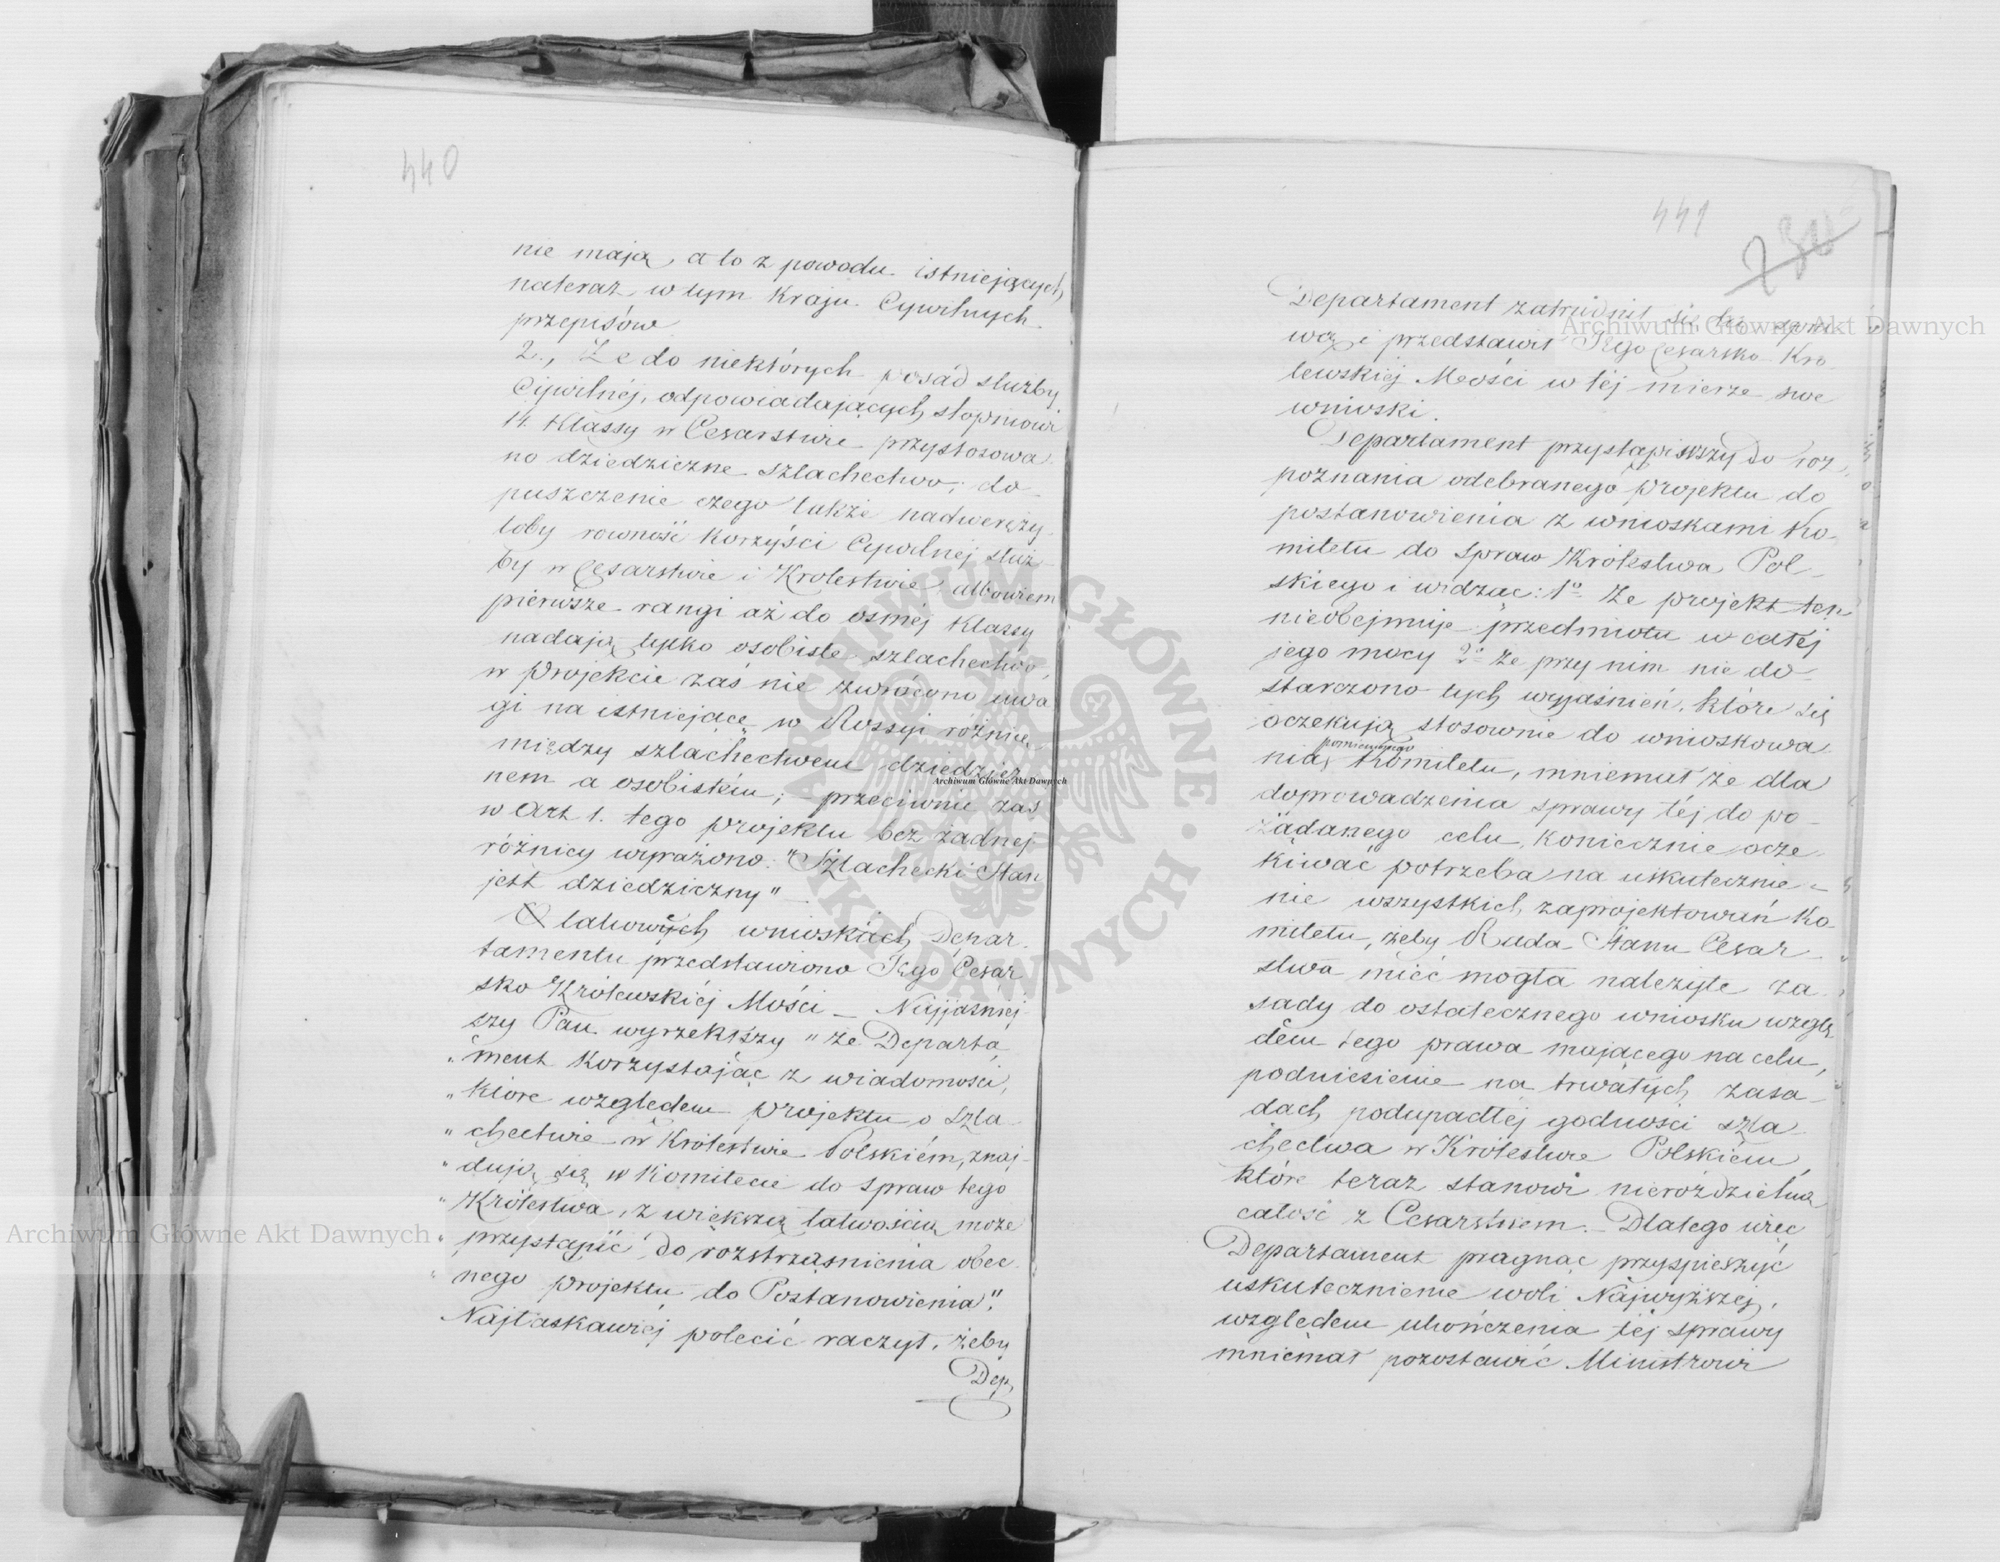 440
nie mają, a to z powodu istniejących
nateraz w tym Kraju Cywilnych
przepisów
2., Że do niektórych posad służby
Cywilnéj, odpowiadających stopniowi
14 Klassy w Cesarstwie przystosowa
no dziedziczne szlachectwo; do-
puszczenie czego także nadweręży-
łoby rowność korzyści Cywilnéj służ-
by w Cesarstwie i Krolestwie albowiem
pierwsze rangi aż do osméj Klassy
nadają tylko osobiste szlachectwo,
w projekcie zaś nie zwrócono uwa
gi na istniejącę w Rossyi różnicę
między szlachectwem dziedzicz
nem a osobistém; - przeciwnie zaś
w Art 1. tego projektu bez żadnej
różnicy wyrażono: "Szlachecki Stan
jest dziedziczny"
O takowych wnioskach Depar-
tamentu przedstawiono Jego Cesar
sko Królewskiéj Mości _ Najjaśniej
szy Pan wyrzekłszy "że Departa
"ment korzystając z wiadomości,
"które względem projektu o szla
"chectwie w Królestwie Polskiém, znaj-
"dują się w Komitecie do spraw tego
"Królestwa, z większą łatwością może
"przystąpić do roztrząśnienia obec
"nego projektu do Postanowienia".
Najłaskawiej polecić raczył, żeby
Dep.
441
Departament zatrudnił się tą spra
wą i przedstawił Jego Cesarsko Kró
lewskiej Mości w téj mierze swe
wnioski.
Departament przystąpiwszy do roz
poznania odebranego projektu do
postanowienia z wnioskami Ko-
mitetu do spraw Królestwa Pol-
skiego i widząc: 1o Że projekt ten
nieobejmuje przedmiotu w całéj
jego mocy 2o że przy nim nie do-
starczono tych wyjaśnień, które się
oczekują stosownie do wnioskowa
pomienionego
nia Komitetu, mniemał że dla
doprowadzenia sprawy téj do po-
żądanego celu, koniecznie ocze-
kiwać potrzeba na uskutecznie-
nie wszystkich zaprojektowań Ko-
mitetu, żeby Rada Stanu Cesar
stwa mieć mogła należyte za-
sady do ostatecznego wniosku wzglę
dem tego prawa mającego na celu,
podniesienie na trwałych zasa-
dach podupadłéj godności szla
chectwa w Królestwie Polskiém,
które teraz stanowi nierozdzielną
całość z Cesarstwem. _ Dlatego więc
Departament pragnąc przyspieszyć
uskutecznienie woli Najwyższej,
względem ukończenia téj sprawy
mniemał pozostawić Ministrowi
Archiwum Główne Akt Dawnych
Archiwum Główne Akt Dawnych
Archiwum Główne Akt Dawnych
ARCHIWUM GŁÓWNE AKT DAWNYCH